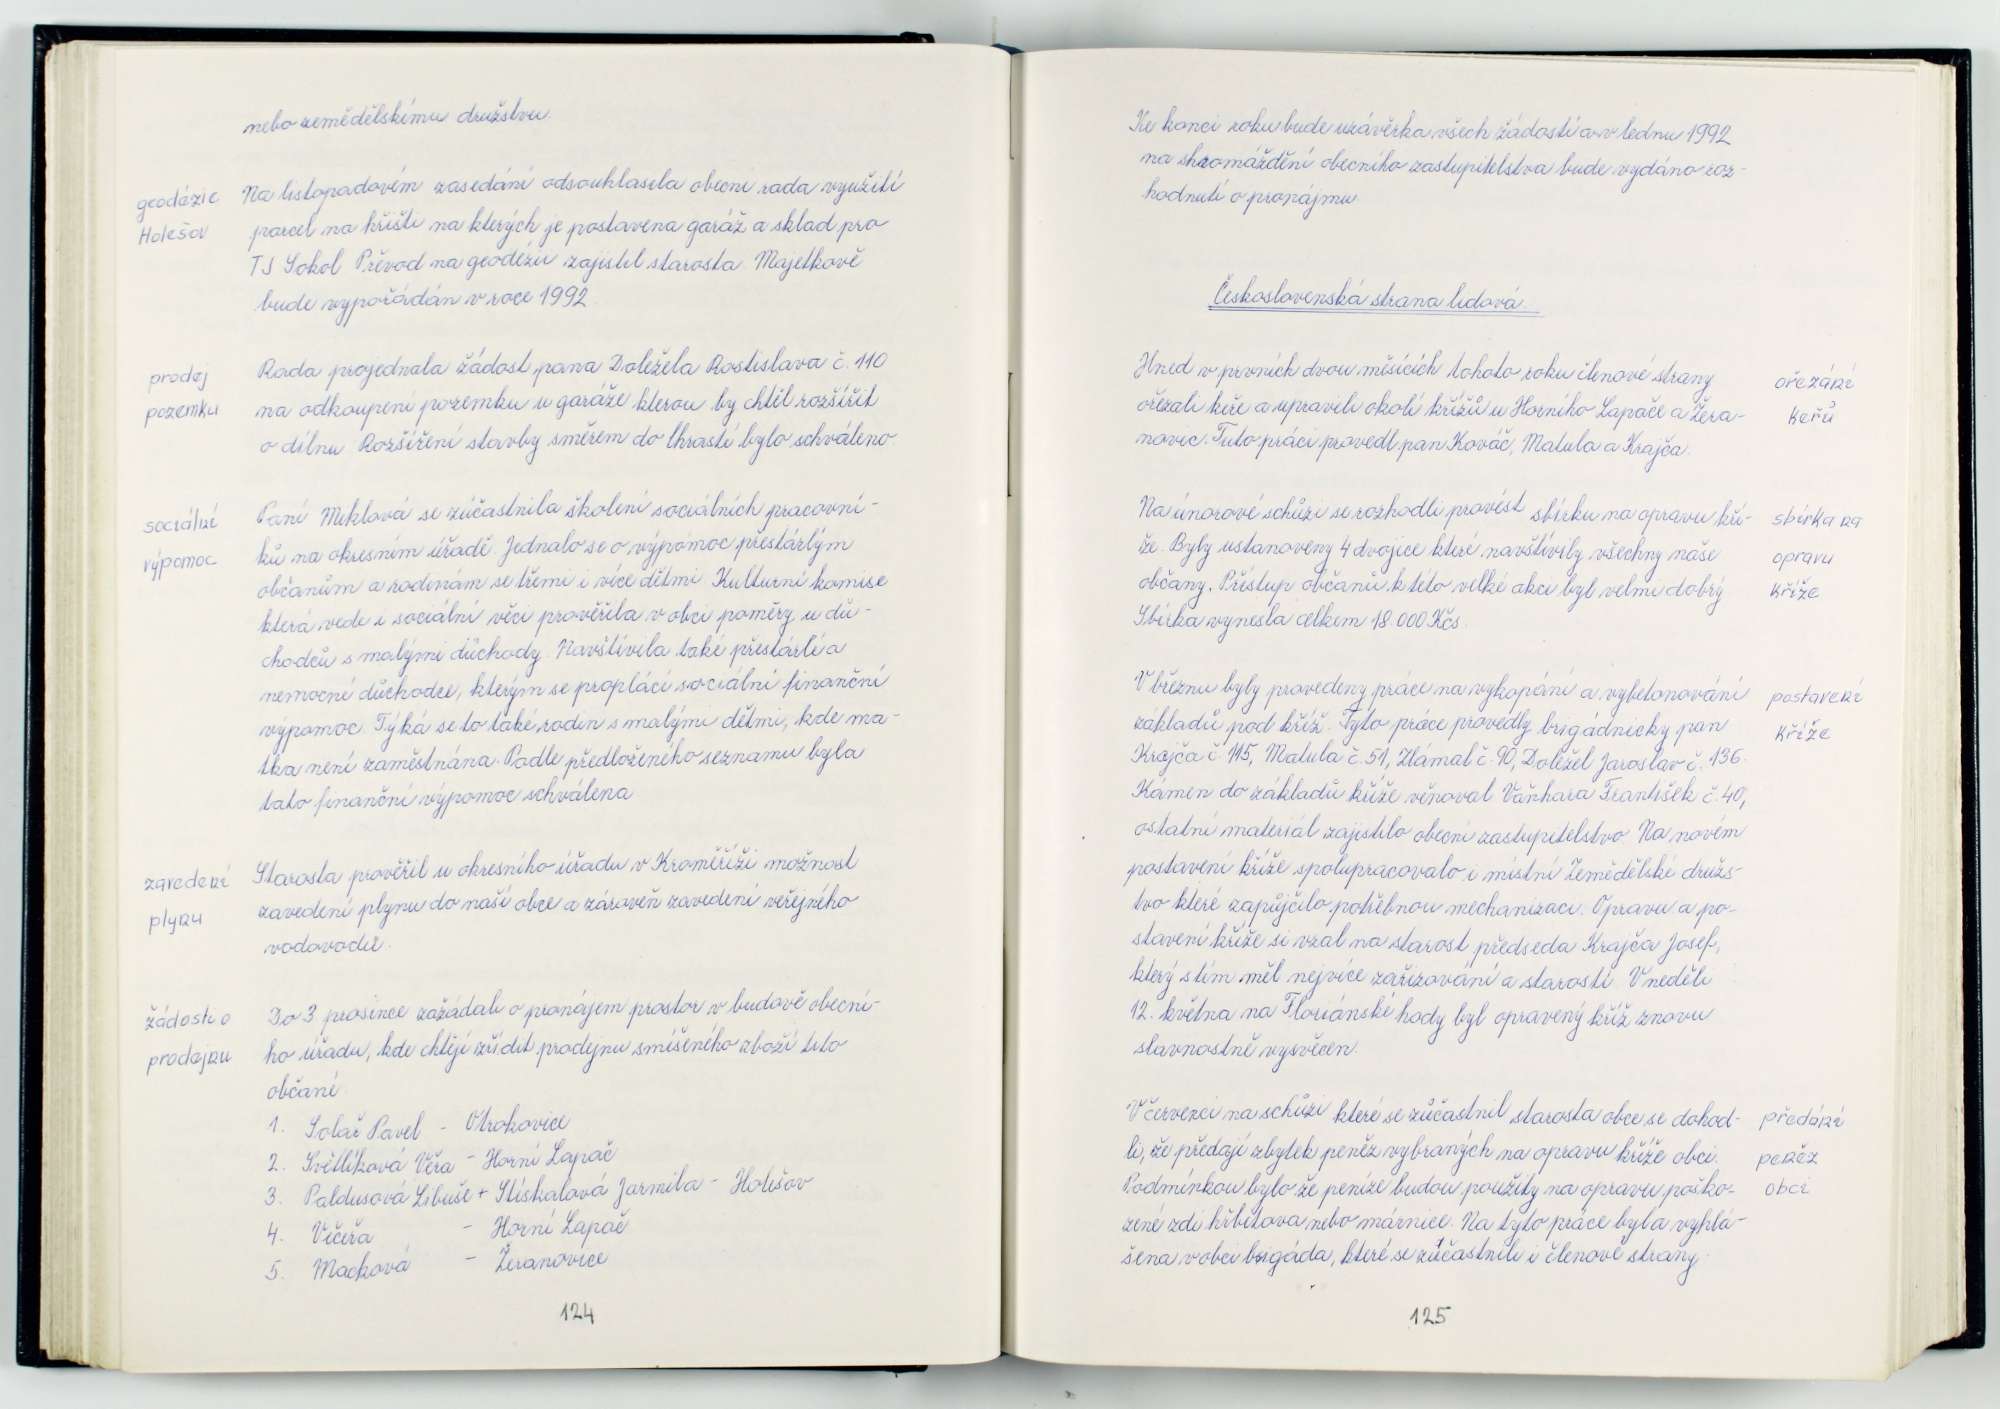 nebo zemědělskému družstvu.
geodézie
Holešov
Na listopadovém zasedání odsouhlasila obecní rada využití
parcel na hřišti na kterých je postavena garáž a sklad pro
TJ Sokol. Převod na geodézii zajistil starosta. Majetkově
bude vypořádán v roce 1992.
prodej
pozemku
Rada projednala žádost pana Doležela Rostislava č. 110
na odkoupení pozemku u garáže kterou by chtěl rozšířit
o dílnu. Rozšíření stavby směrem do chrastí bylo schváleno.
sociální
výpomoc
Paní Miklová se zúčastnila školení sociálních pracovní-
ků na okresním úřadě. Jednalo se o výpomoc přestárlým
občanům a rodinám se třemi i více dětmi. Kulturní komise
která vede i sociální věci prověřila v obci poměry u dů-
chodců s malými důchody. Navštívila také přestárlé a
nemocné důchodce, kterým se proplácí sociální finanční
výpomoc. Týká se to také rodin s malými dětmi, kde ma-
tka není zaměstnána. Podle předloženého seznamu byla
tato finanční výpomoc schválena
zavedení
plynu
Starosta prověřil u okresního úřadu v Kroměříži možnost
zavedení plynu do naší obce a zároveň zavedení veřejného
vodovodu.
žádosti o
prodejnu
Do 3. prosince zažádali o pronájem prostor v budově obecní-
ho úřadu, kde chtějí zřídit prodejnu smíšeného zboží tito
občané.
1. Solař Pavel - Otrokovice
2. Světlíková Věra - Horní Lapač
3. Paldusová Libuše + Stískalová Jarmila - Holešov
4. Vičeřa - Horní Lapač
5. Macková - Žeranovice
124
Ke konci roku bude uzávěrka všech žádostí a v lednu 1992
na shromáždění obecního zastupitelstva bude vydáno roz-
hodnutí o pronájmu.
Československá strana lidová.
Hned v prvních dvou měsících tohoto roku členové strany
ořezali keře a upravili okolí křížů u Horního Lapače a Žera-
novic. Tuto práci provedl pan Kováč, Matula a Krajča.
ořezání
keřů
Na únorové schůzi se rozhodli provést sbírku na opravu kří-
že. Byly ustanoveny 4 dvojice které navštívily všechny naše
občany. Přístup občanů k této velké akci byl velmi dobrý
Sbírka vynesla celkem 18.000 Kčs.
sbírka na
opravu
kříže
V březnu byly provedeny práce na vykopání a vybetonování
základů pod kříž. Tyto práce provedly brigádnicky pan
Krajča č. 115, Matula č. 51, Zlámal č. 90, Doležel Jaroslav č. 136.
Kámen do základů kříže věnoval Vaňhara František č. 40,
ostatní materiál zajistilo obecní zastupitelstvo. Na novém
postavení kříže spolupracovalo i místní Zemědělské druž-
stvo které zapůjčilo potřebnou mechanizaci. Opravu a po-
stavení kříže si vzal na starost předseda Krajča Josef,
který s tím měl nejvíce zařizování a starostí. V neděli
12. května na Floriánské hody byl opravený kříž znovu
slavnostně vysvěcen.
postavení
kříže
V červenci na schůzi které se zůčastnil starosta obce se dohod-
li, že předají zbytek peněz vybraných na opravu kříže obci.
Podmínkou bylo že peníze budou použity na opravu poško-
zené zdi hřbitova nebo márnice. Na tyto práce byla vyhlá-
šena v obci brigáda, které se zúčastnili i členové strany.
předání
peněz
obci
125